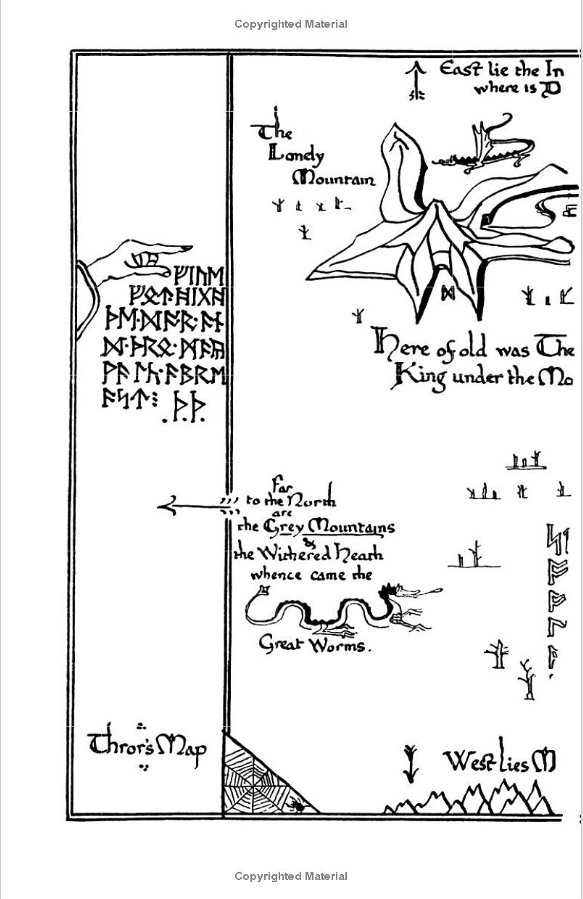 Copyrighted Material
East lie the In
where is D
The
Lonely
Mountain
ᚠᛁᚢᛖ
ᚠᛟᛏᚻᛁᚷᚻ
ᚦᛖ᛫ᛞᚩᚱ᛫ᚪᚾ
ᛞ᛫ᚦᚱᛟ᛫ᛗᚪᚣ
ᚹᚪᛚᚳ᛫ᚪᛒᚱᛖ
ᚪᛋᛏ⁝ .ᚦ.ᚦ.
ᛞ
Here of old was The
King under the Mo
Far
to the North
are
the Grey Mountains
&
the Withered Heath
whence came the
Great Worms.
Thror's Map
West lies M
Copyrighted Material